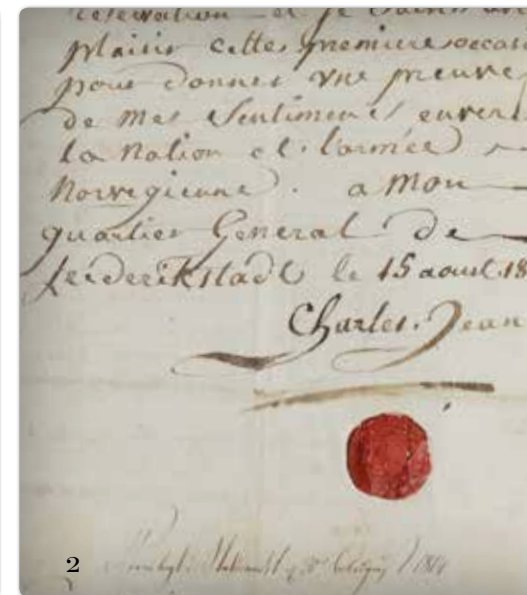 reservation et je saisis avec
plaisir cette premiere occasi
pour donner une preuve
de mes Sentimens envers
la Nation et l'armée
Norvegienne. a Mon
quartier General de
frederikstadt le 15 aoust 18
Charles. Jean
2
1814